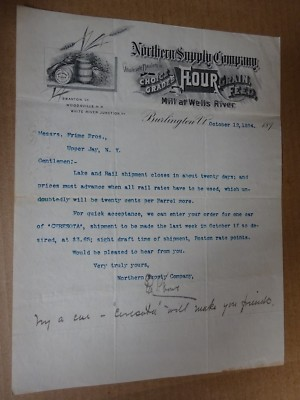 Northern Supply Company,
Wholesale Dealers in
CHOICE GRADES FLOUR GRAIN, FEED,
Mill at Wells River.
WHITE RIVER JUNCTION
Burlington, Vt. October 13, 1894. 189
Messrs. Prime Bros.,
Upper Jay, N. Y.
Gentlemen:-
Lake and Rail shipment closes in about twenty days; and
prices must advance when all rail rates have to be used, which un-
doubtedly will be twenty cents per Barrel more.
For quick acceptance, we can enter your order for one car
of "CERESOTA", shipment to be made the last week in October if so de-
sired, at $3.65; sight draft time of shipment, Boston rate points.
Would be pleased to hear from you.
Very truly yours,
Northern Supply Company,
Try a car - "Ceresota" will make you friends.